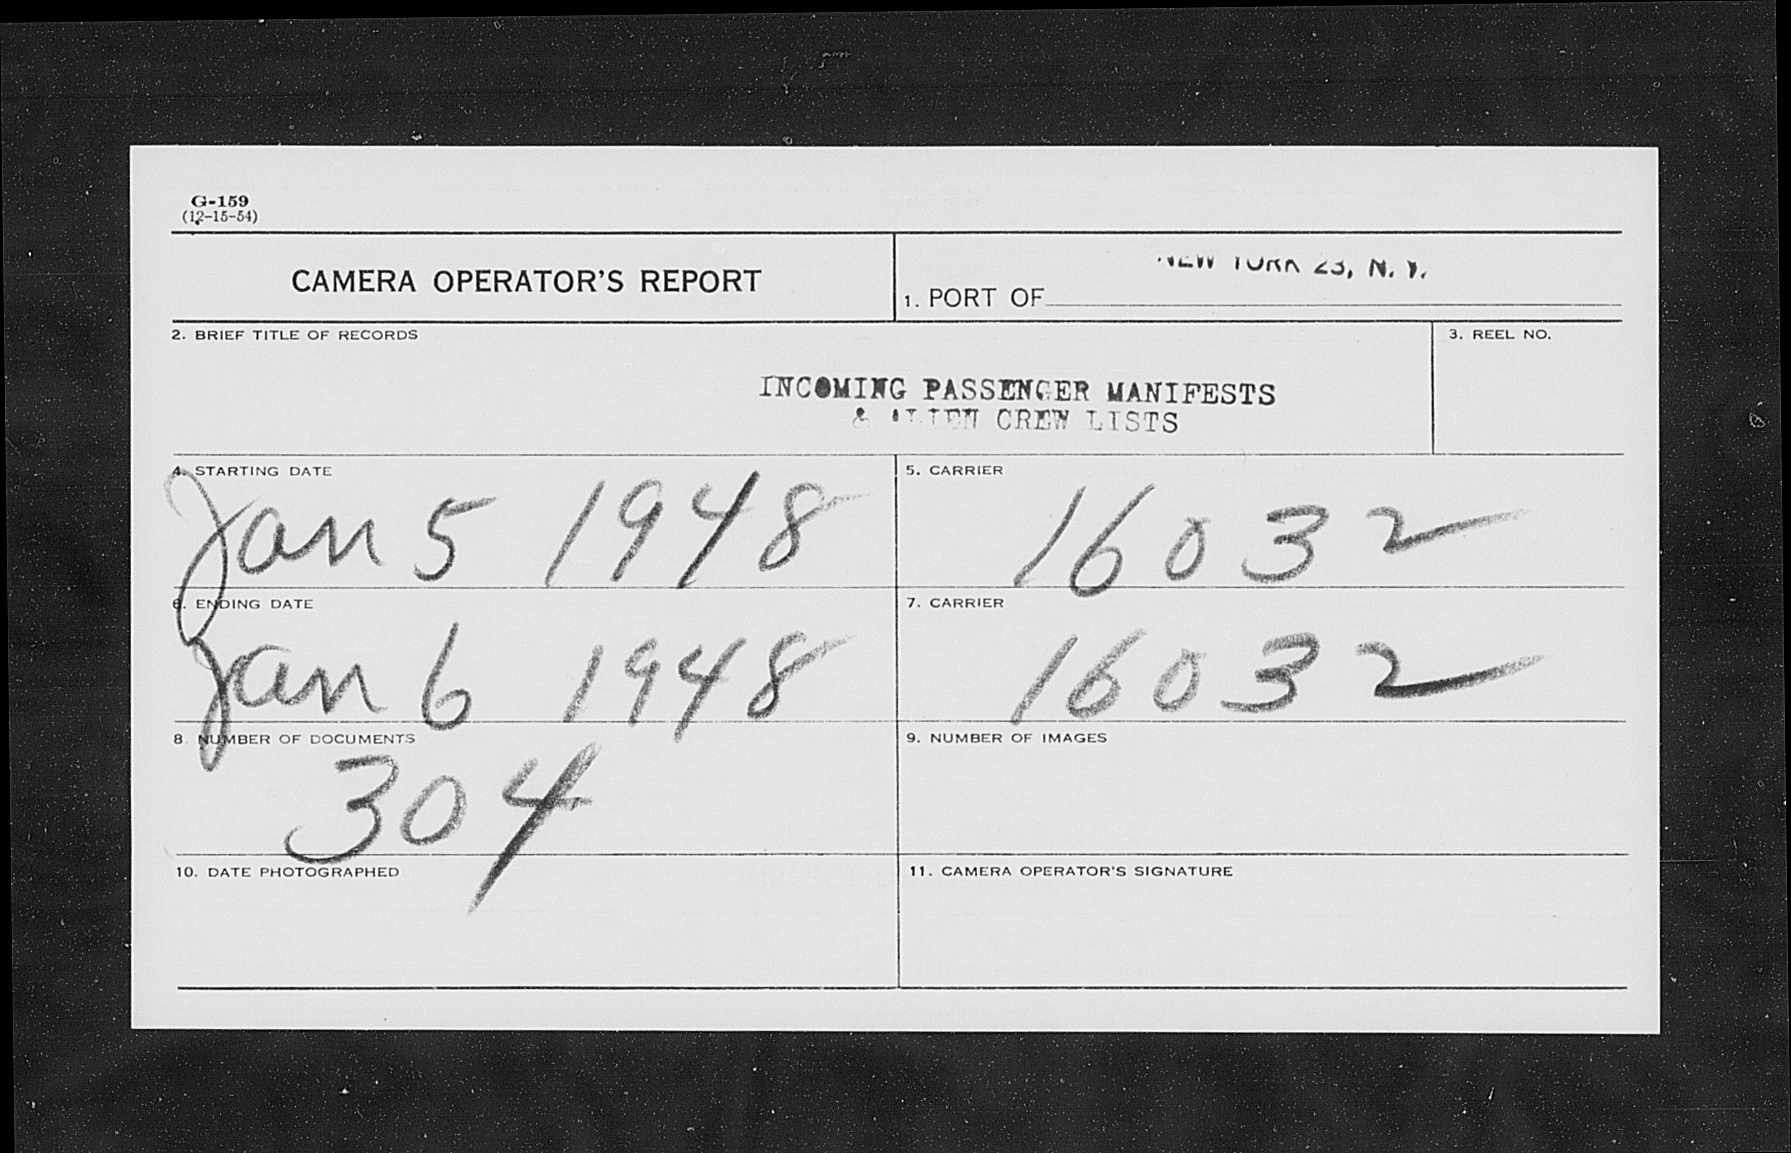 G-159
(12-15-54)
CAMERA OPERATOR'S REPORT
NEW YORK 23, N. Y.
1. PORT OF
2. BRIEF TITLE OF RECORDS
3. REEL NO.
INCOMING PASSENGER MANIFESTS
& ALIEN CREW LISTS
4. STARTING DATE
Jan 5 1948
5. CARRIER
16032
6. ENDING DATE
Jan 6 1948
7. CARRIER
16032
8. NUMBER OF DOCUMENTS
304
9. NUMBER OF IMAGES
10. DATE PHOTOGRAPHED
11. CAMERA OPERATOR'S SIGNATURE